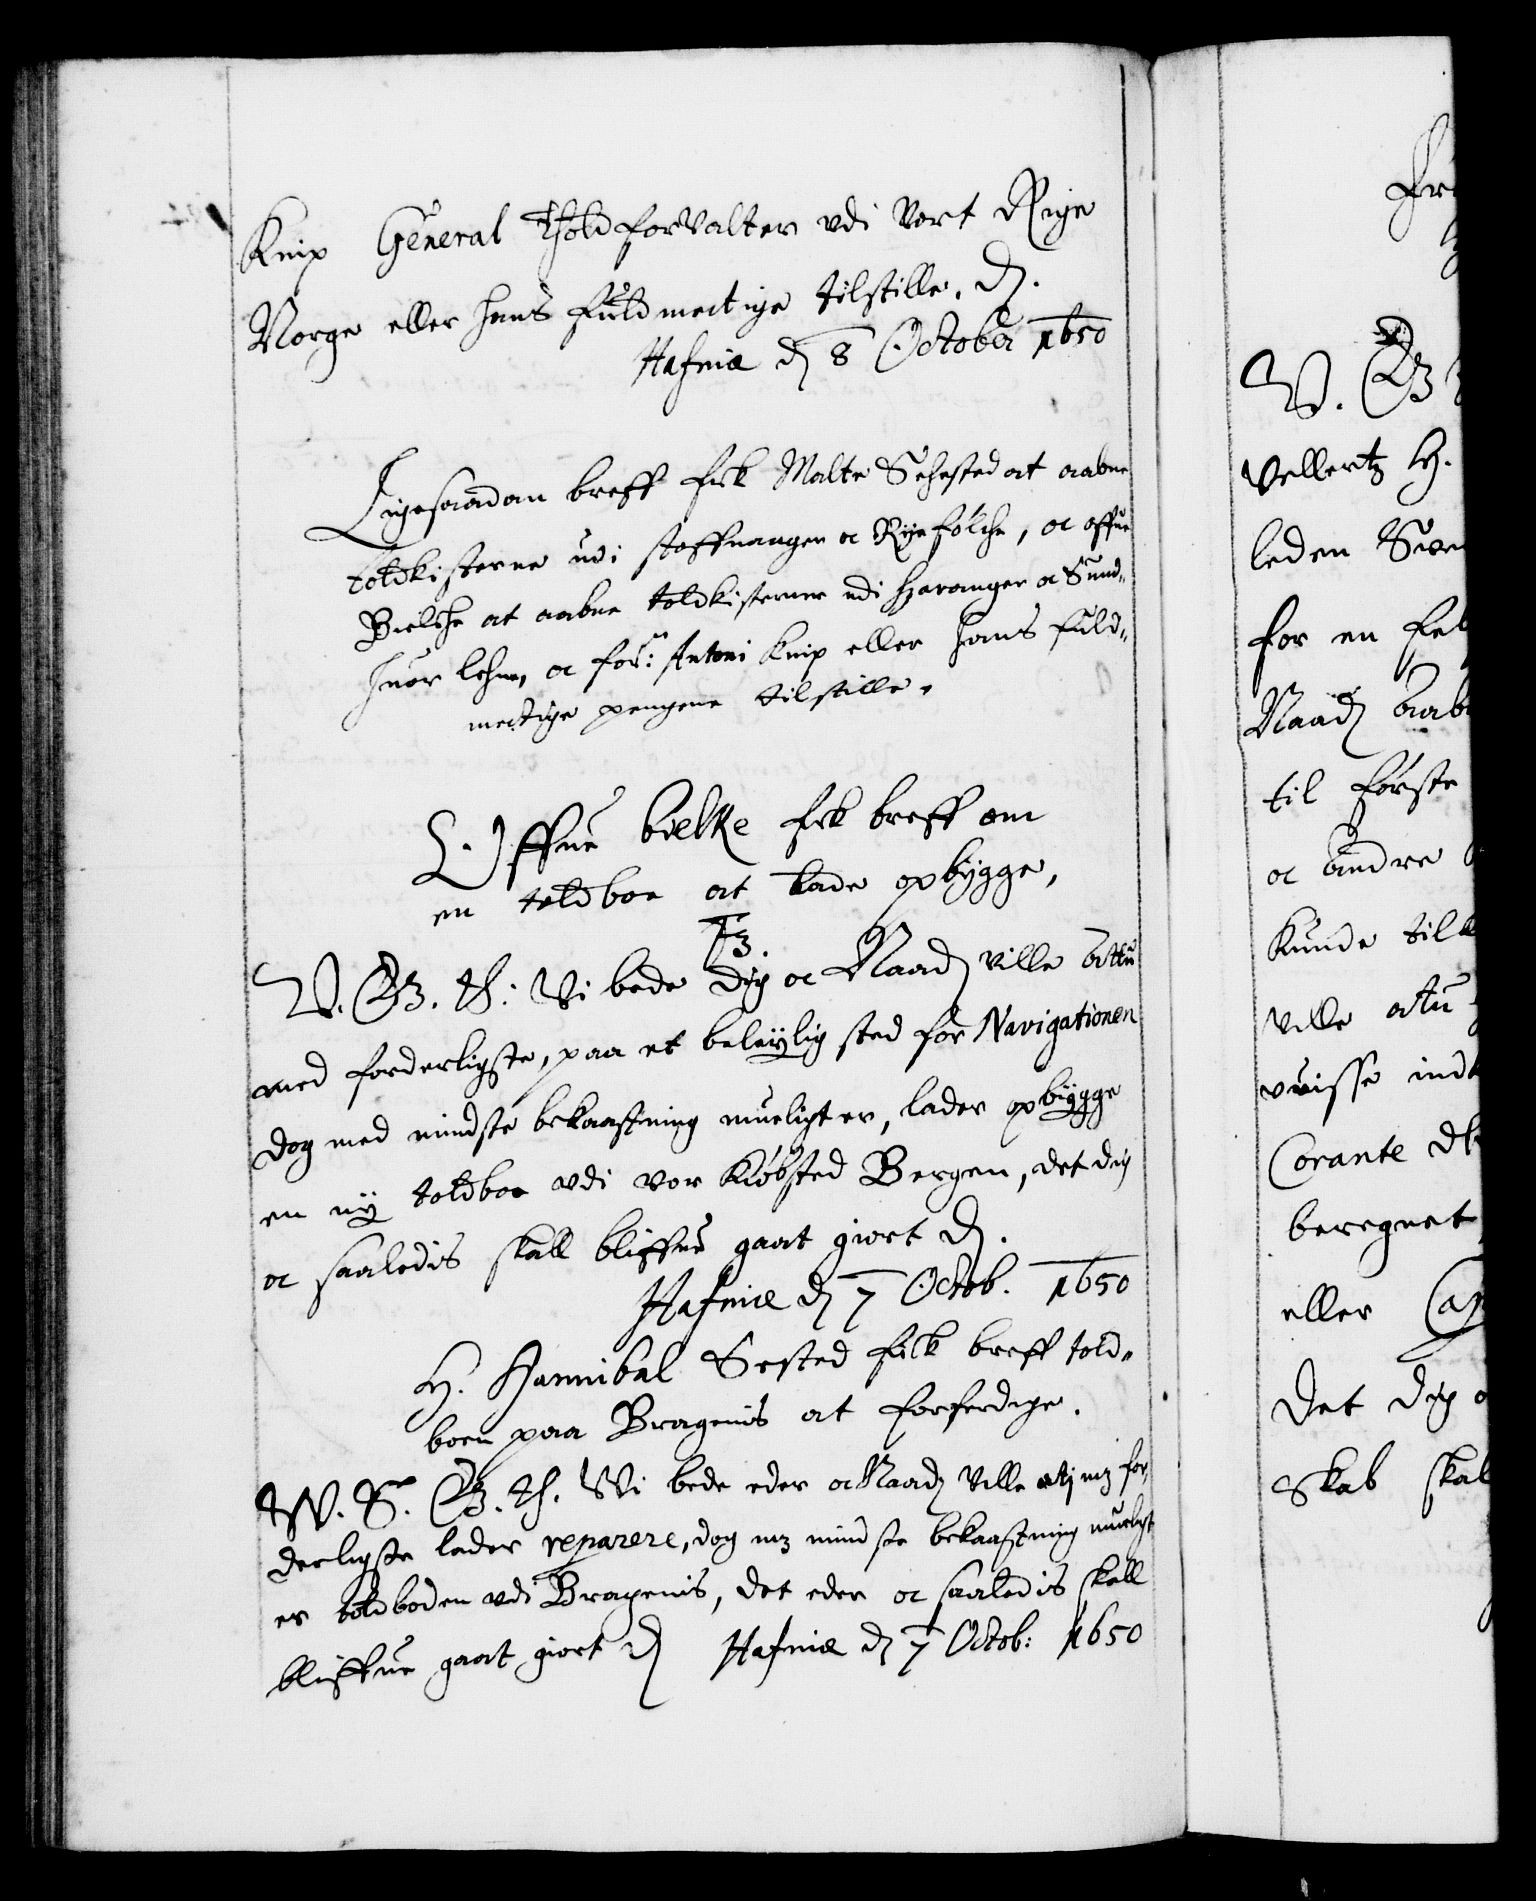 Knip General Tholdforvalter vdi Vort Rige
Norge eller hans fuldmectige tilstille. D.
Hafniæ d 8 October 1650
Ligesaadan breff fik Malte Sehested at aabne
toldkisterne udi staffnanger oc Ryefölche, oc offue
Bielche at aabne toldkisterne udi Haranger oc Sund-
huor lehne, oc for: Antoni Knip eller hans fuld-
mectige pengene tilstille.
Offue bielke fik breff om
en toldboe at lade opbygge,
C 4tz.
V. G. T: Vi bede dig oc Naad ville attu
med forderligste, paa et beleÿlig sted for Navigationen
dog med mindste bekaastning mueligt er, lader opbÿgge
en nÿ toldboe vdi vor Kiöbsted Bergen, det dig
oc saaledis skall bliffue gaat giort D.
Hafniæ d 7 Octob. 1650
H. Hannibal Sested fick breff told-
boen paa Bragenis at forferdige.
W. S. G. T. Vi bede eder oc Naad ville atj mz for
derligste lader reparere, dog mz mindste bekaastning mueligt
er toldboden vdi Bragenis, det eder oc saaledis skall
bliffue gaat giort D Hafniæ d 7 Octob: 1650
V. G
Vellertz H.
leden
for en
Naad
til förste
oc andre
Kunde
ville attu
visse
Corante
beregnet
eller
det dig
skab